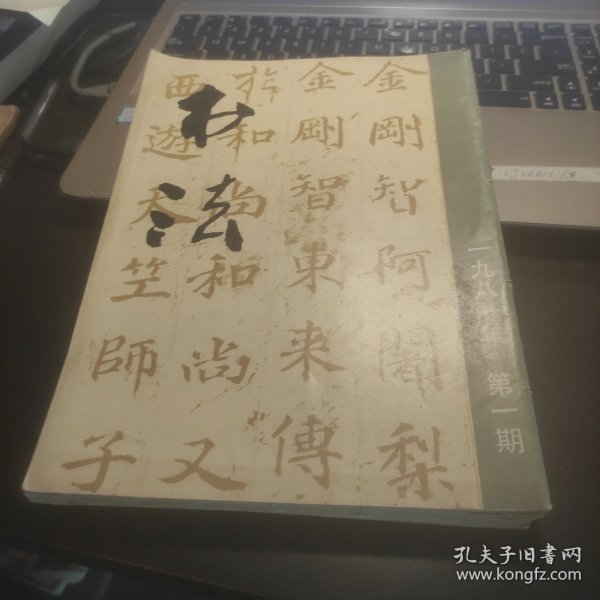 书法
金剛智阿闍梨
金剛智東来傳
於和尚和尚又
西遊天竺師子
第一期
孔夫子旧书网
www.kongfz.com